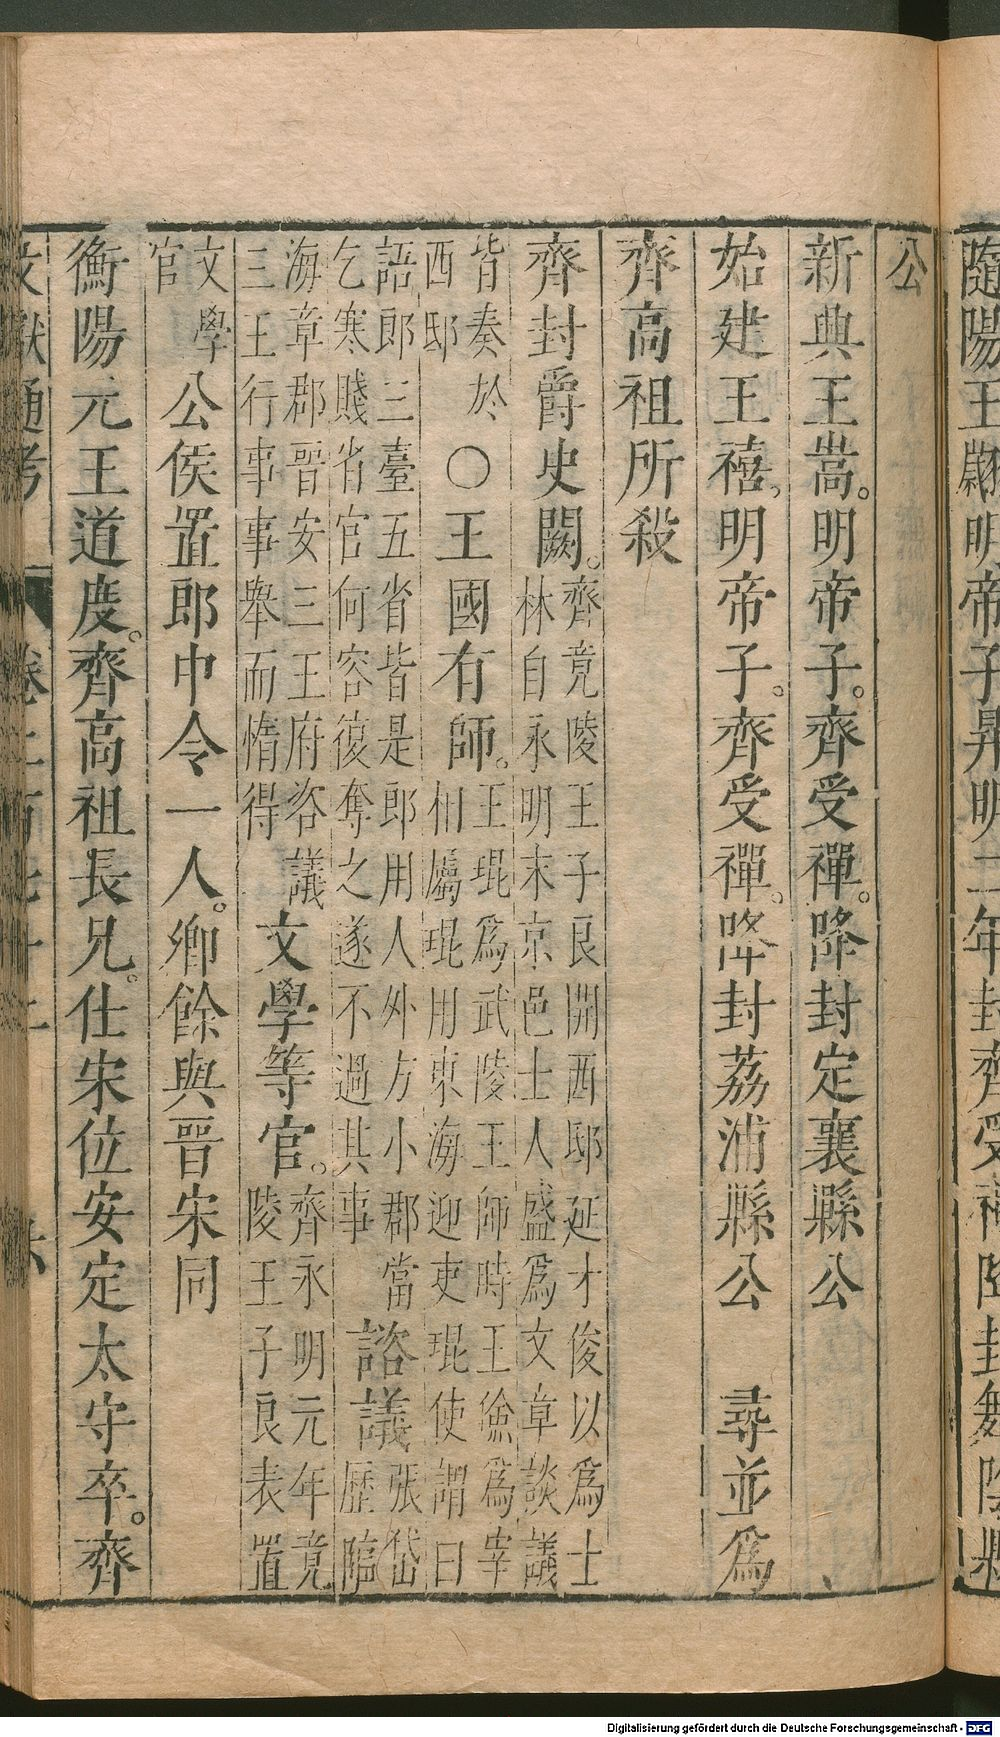 隨陽王翽明帝子昇明二年封齊受禪降封舞陰縣
公
新興王嵩。明帝子。齊受禪。降封定襄縣公
始建王禧。明帝子。齊受禪。降封荔浦縣公 尋並爲
齊高祖所殺
齊封爵史闕。齊竟陵王子良開西邸延才俊以爲士
林自永明末京邑士人盛爲文章談議
皆奏於
西邸
〇王國有師。王琨爲武陵王師時王儉爲宰
相屬琨用東海迎吏琨使謂曰
語郎三臺五省皆是郎用人外方小郡當
乞寒賤省官何容復奪之遂不過其事
諮議張岱
歷臨
海章郡晉安三王府咨議
三王行事事舉而惰得
文學等官。齊永明元年竟
陵王子良表置
文學
官
公侯置郎中令一人。卿餘與晉宋同
衡陽元王道度。齊高祖長兄。仕宋位安定太守卒。齊
文獻通考 卷二百七十二
Digitalisierung gefördert durch die Deutsche Forschungsgemeinschaft - DFG